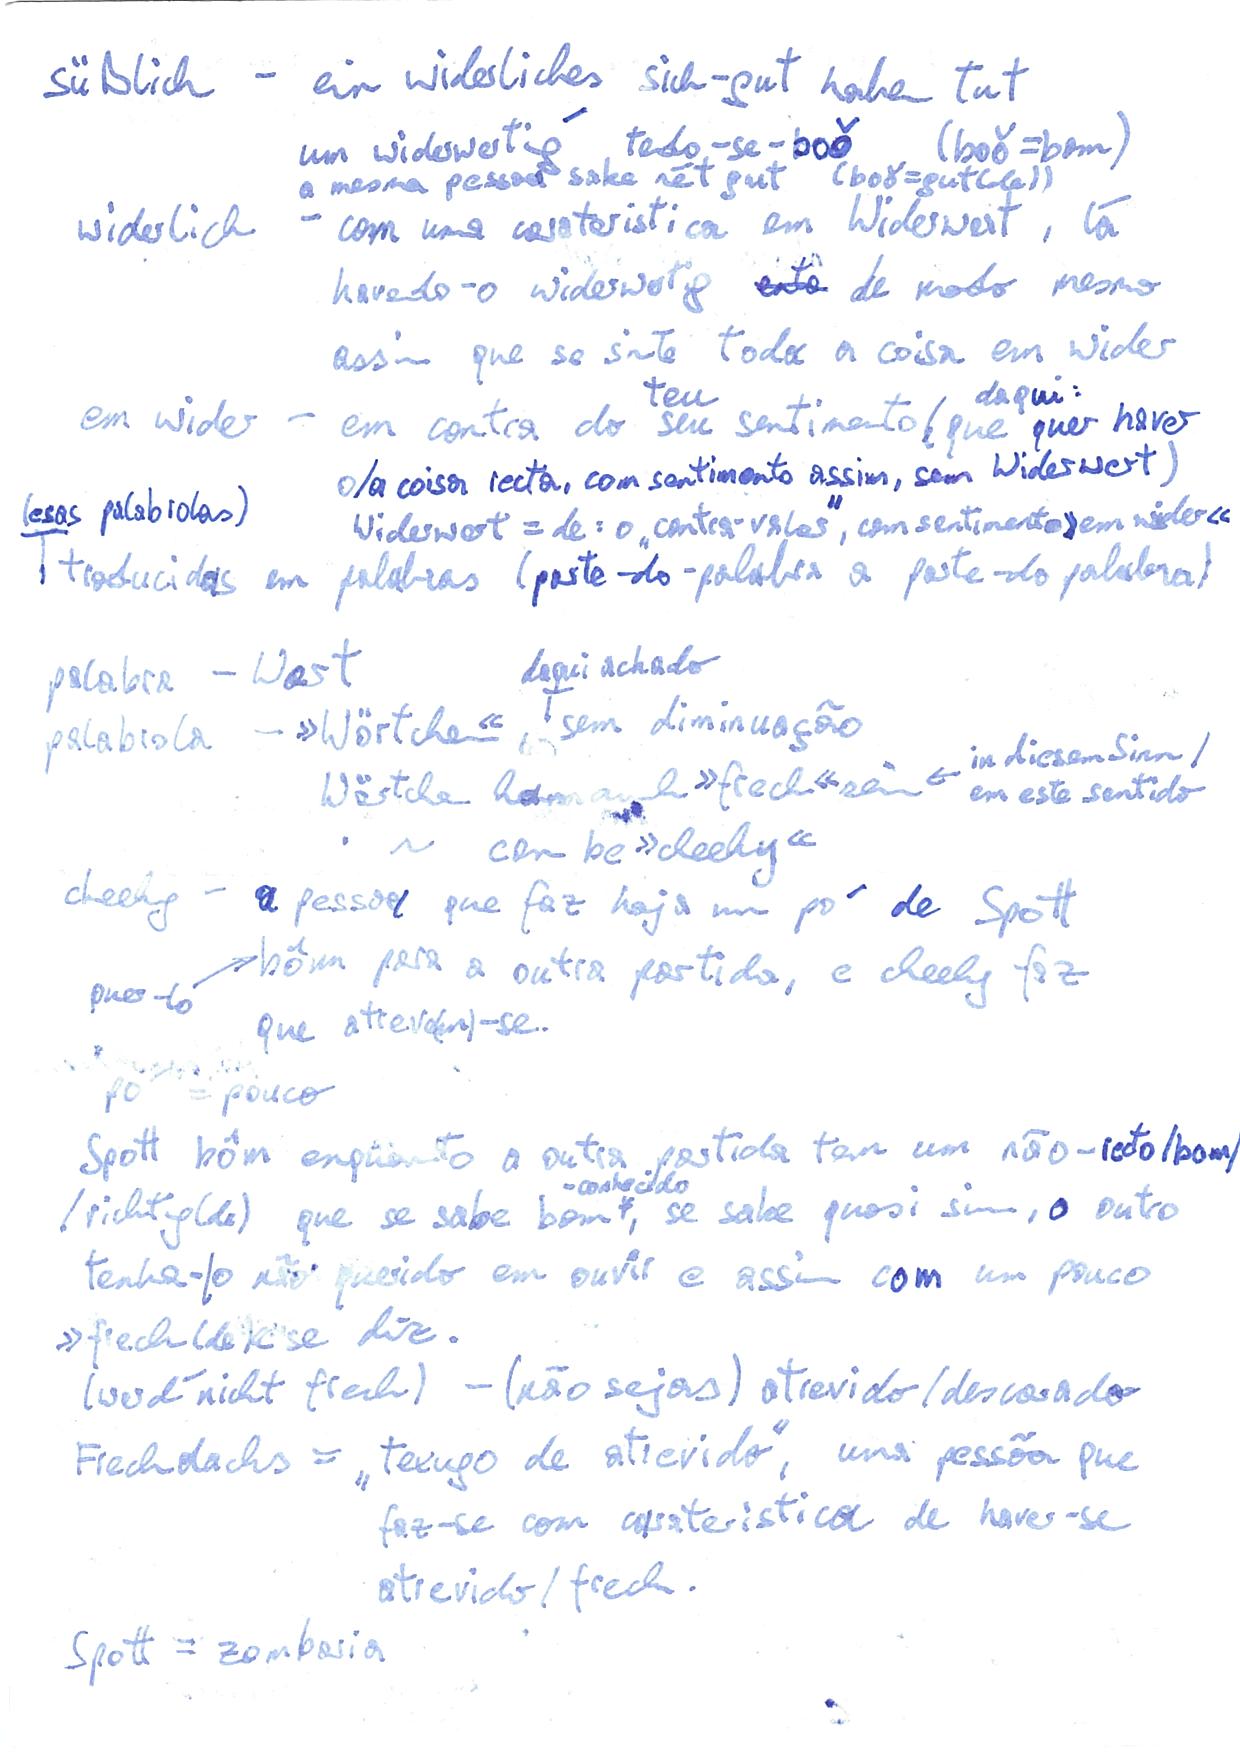 süßlich – ein widerliches sich-gut haben tut
um widerwertig tedo-se-boǒ (boǒ=bom)
a mesma pessoa sabe nét gut (boǒ=gut(de))
widerlich – com uma caraterística em Widerwert, lá
havedo-o widerwertig de modo mesmo
assim que se sinte toda a coisa em wider
teu daqui:
em wider – em contra do seu sentimento (que quer haver
o/a coisa recta, com sentimento assim, sem Widerwert)
(esas palabiolas) Widerwert = de: o „contra-valor“, com sentimento »em wider«
traducidas em palabras (parte-do-palabra a parte-do palabra)
palabra – Wort daqui achado
palabiola – »Wörtchen«, sem diminuação
Wörtche »frech« sein ← in diesem Sinn /
em este sentido
~ can be »cheeky«
cheeky – a pessoa que faz haja um po´ de Spott
bőm para a outra partida, e cheeky faz
quer-lo
que atrev(em)-se.
po´ = pouco
Spott bőm enqüanto a outra partida tem um não-recto/bom/
/richtig(de) que se sabe bom*, se sabe quasi sim, o outro
-conhecido
tenha-lo não querido em ouvir e assim com um pouco
»frech(de)« se diz.
(werd´ nicht frech) – (não sejas) atrevido/descarado
Frechdachs = „texugo de atrevido“, uma pessõa que
faz-se com caraterística de haver-se
atrevido/frech.
Spott = zombaria